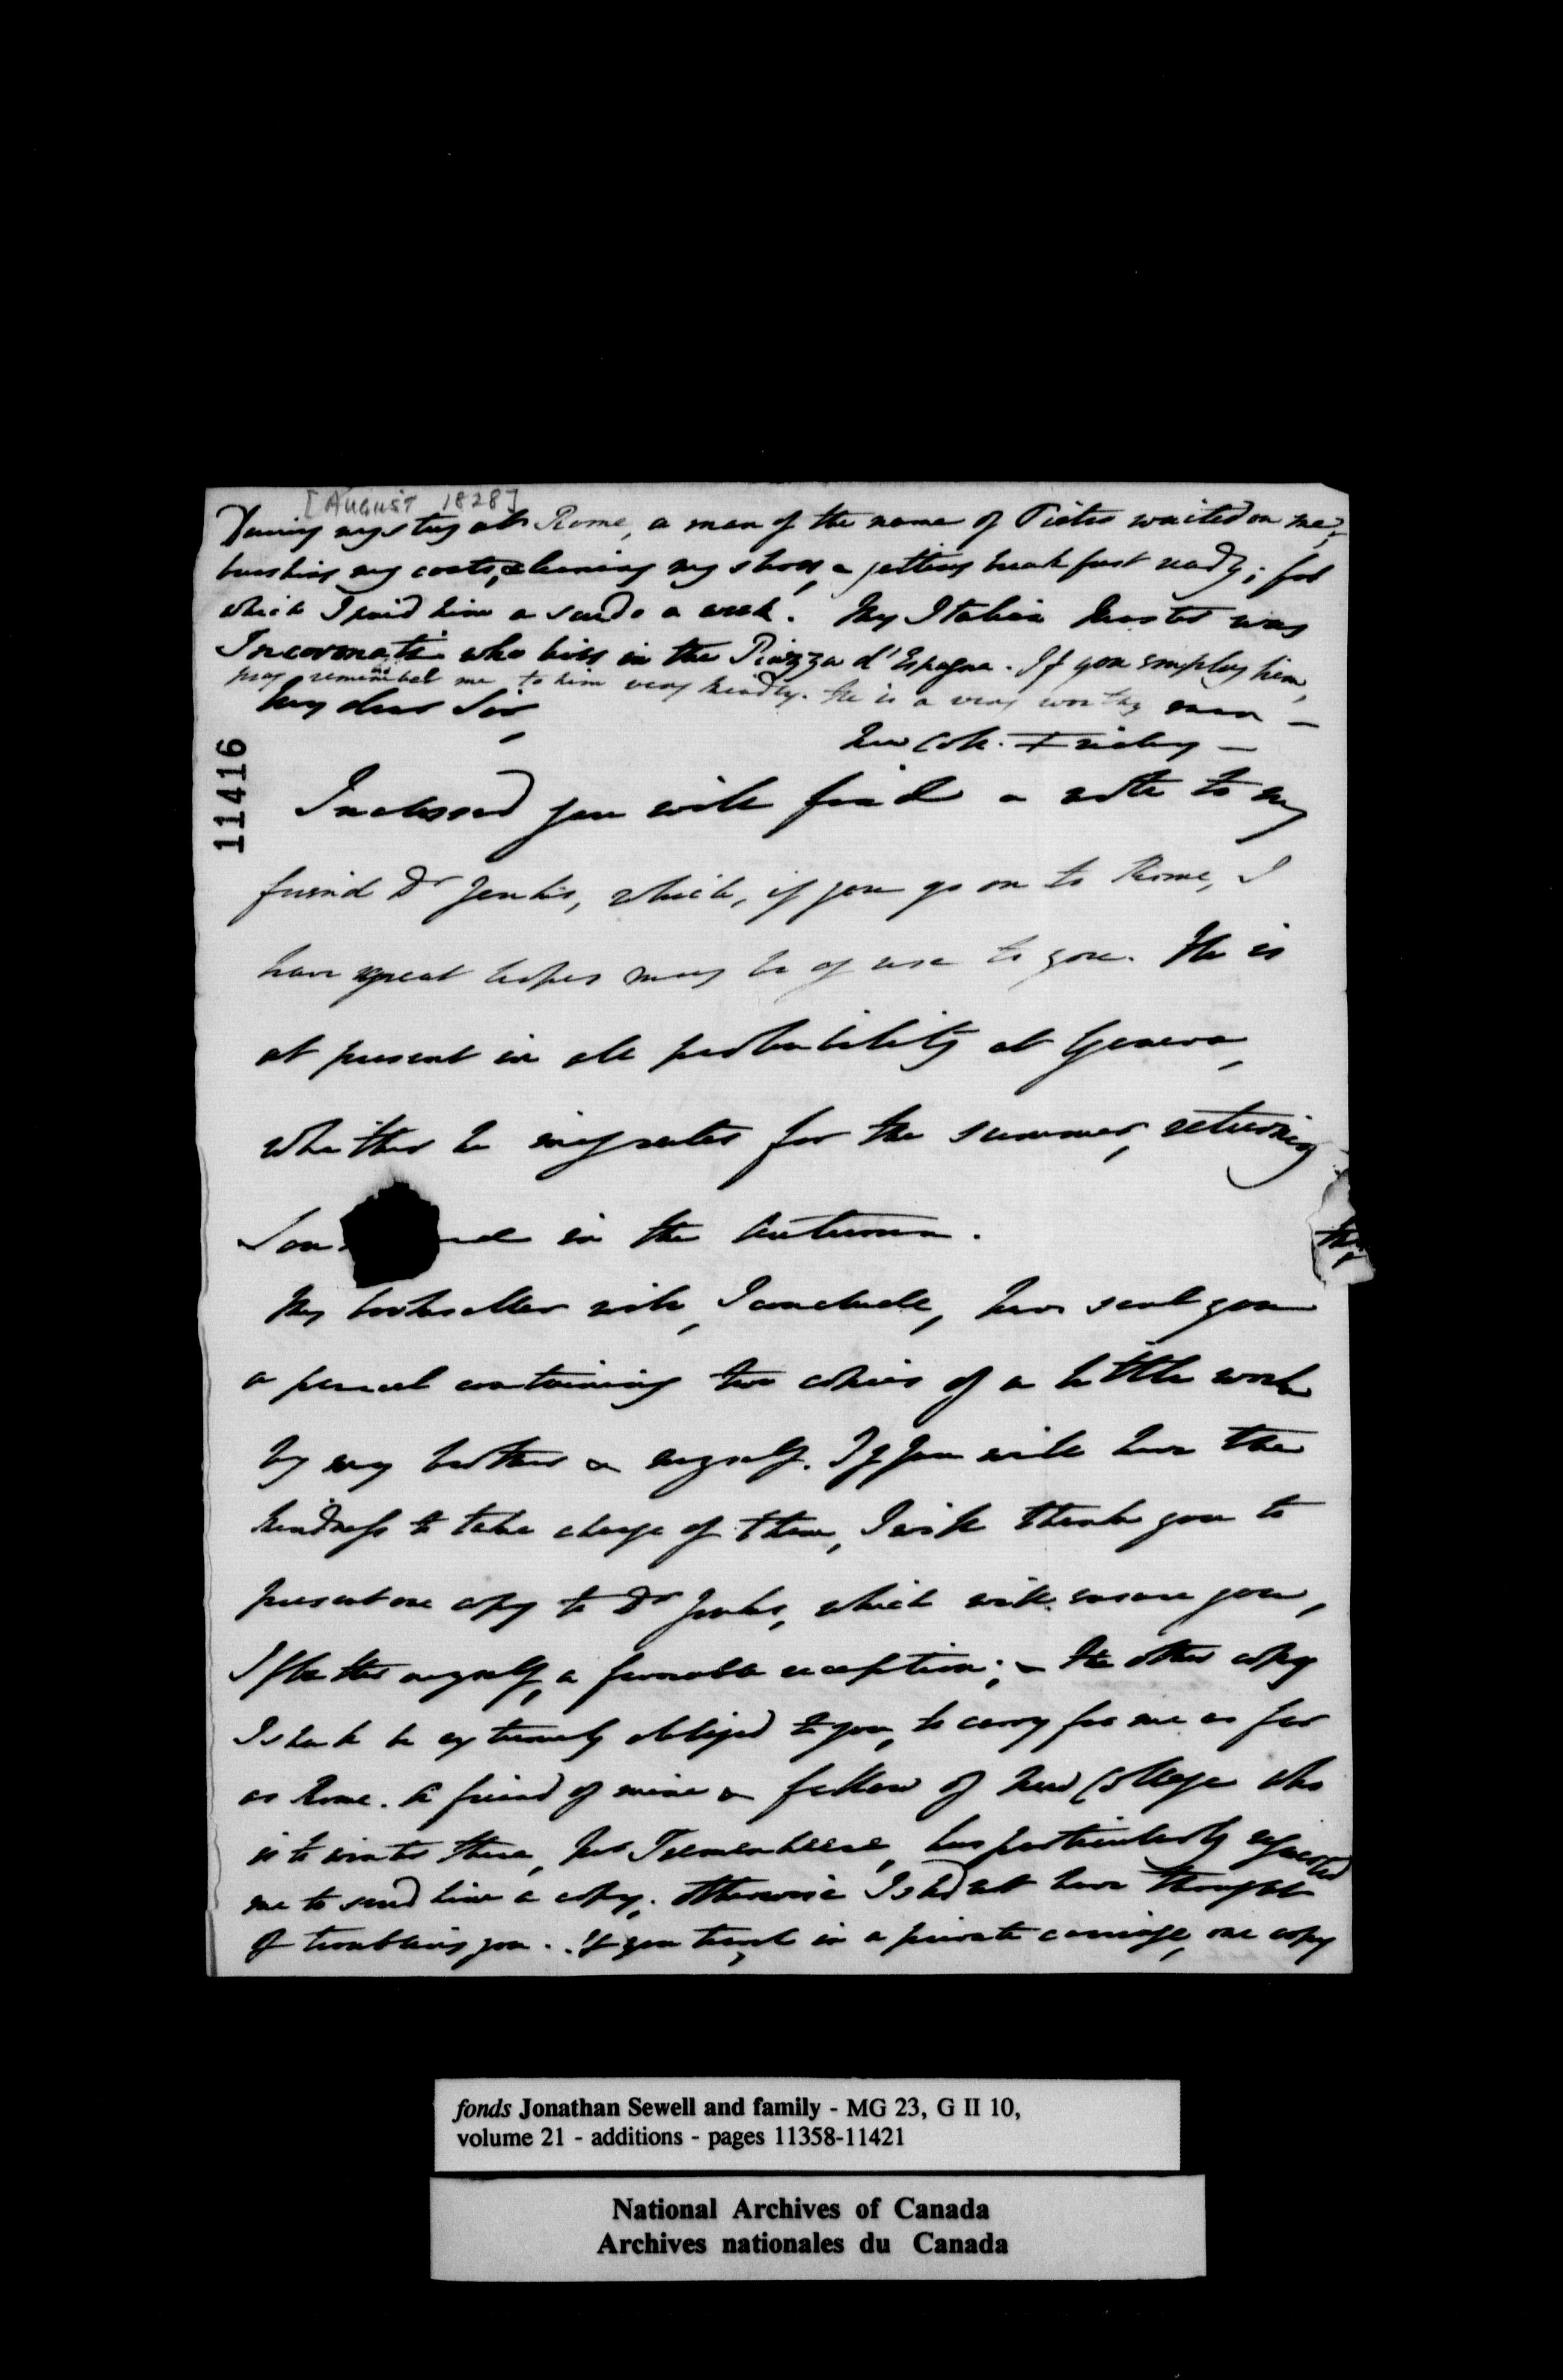 [August 1828]
During my stay at Rome, a man of the name of Pietro waited on me,
brushing my coats, cleaning my shoes, & getting breakfast ready; for
which I paid him a scudo a week. My Italian Master was
Incoronati who lives in the Piazza d'Espagna. If you employ him,
pray remember me to him very kindly. He is a very worthy man —
My dear Sir,
New Coll. Friday —
11416
Inclosed you will find a note to my
friend Dr Jenks, which, if you go on to Rome, I
have great hopes may be of use to you. He is
at present in all probability at Geneva,
whither he migrates for the summer, returning
in the Autumn.
My bookseller will, I conclude, have sent you
a parcel containing two copies of a little work
by my brother & myself. If you will have the
kindness to take charge of them, I will thank you to
present one copy to Dr Jenks, which will ensure you,
I flatter myself, a favorable reception; & the other copy
I shall be extremely obliged to you, to carry for me as far
as Rome. A friend of mine & fellow of New College who
is to winter there, Mr Tremenheere, has particularly requested
me to send him a copy; otherwise I should not have thought
of troubling you. If you travel in a private carriage, one copy
fonds Jonathan Sewell and family - MG 23, G II 10,
volume 21 - additions - pages 11358-11421
National Archives of Canada
Archives nationales du Canada